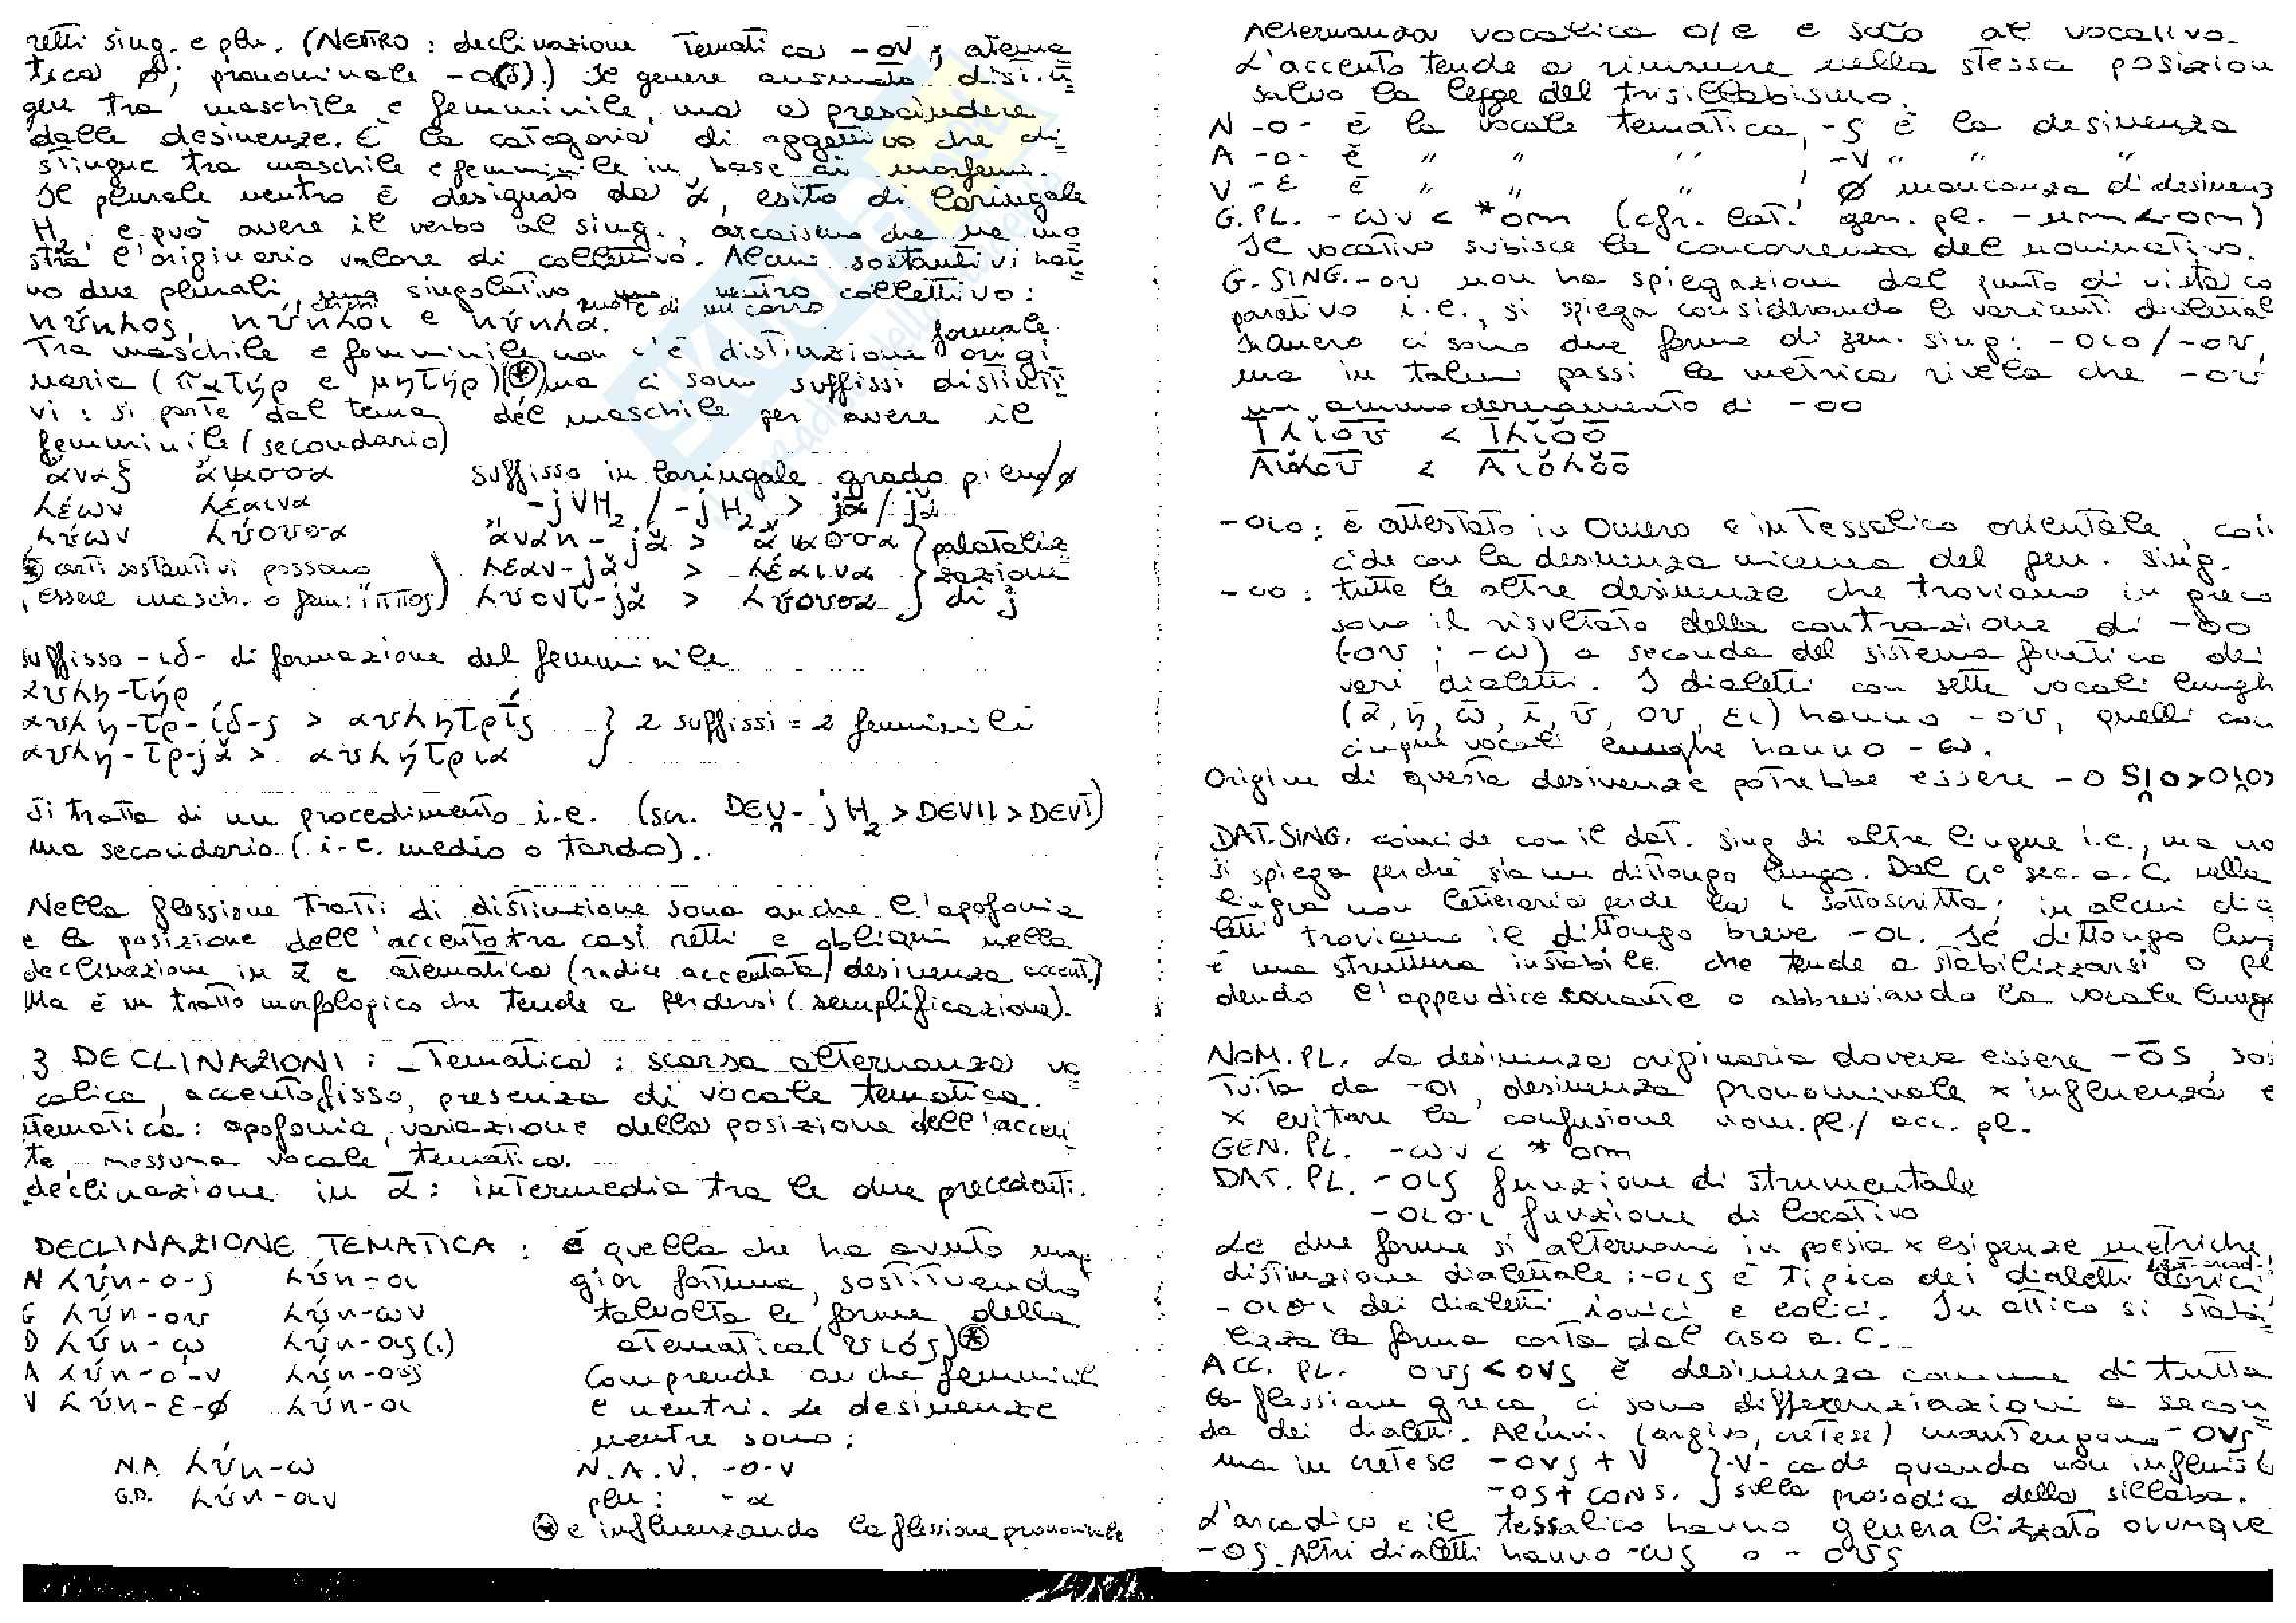 retti sing. e plu. (NEUTRO: declinazione Temati ca -ον, atema
tica ø; pronominale -o(δ).) Il genere animato distin
gue tra maschile e femminile, ma a prescindere
dalle desinenze. È la categoria di aggettivo che di
stingue tra maschile e femminile in base ai morfemi.
Il plurale neutro è designato da ᾰ, esito di laringale
H2, e può avere il verbo al sing., arcaismo che ne mo
stra l'originario valore di collettivo. Alcuni sostantivi han
no due plurali, uno singolativo, uno neutro collettivo:
κύκλος, κύκλοι e κύκλα.
cerchi ruote di un carro
Tra maschile e femminile non c'è distinzione formale origi
naria (πατήρ e μητήρ)(*) ma ci sono suffissi distinti
vi: si parte dal tema del maschile per avere il
femminile (secondario)
ἄναξ ἄνασσα suffisso in laringale grado pieno/ø
λέων λέαινα -jVH2 / -jH2 > jᾱ / jᾰ
λύων λύουσα ἄνακ-jᾰ > ἄνασσα } palataliz
(*) certi sostantivi possono λεαν-jᾰ > λέαινα } zazione
essere masch. o fem: ἵππος) λυοντ-jᾰ > λύουσα } di j
suffisso -ιδ- di formazione del femminile
αυλη-τήρ
αυλη-τρ-ίδ-ς > αυλητρίς } 2 suffissi = 2 femminili
αυλή-τρ-jᾰ > αυλήτρια
Si tratta di un procedimento i.e. (scr. DEU̯-jH2 > DEVII > DEVĪ)
ma secondario (i-e. medio o tardo).
Nella flessione tratti di distinzione sono anche l'apofonia
e la posizione dell'accento tra casi retti e obliqui nella
declinazione in ᾱ e atematica (radice accentata/desinenza accent.)
Ma è un tratto morfologico che tende a perdersi (semplificazione).
3 DECLINAZIONI: -Tematica: scarsa alternanza vo
calica, accento fisso, presenza di vocale tematica.
atematica: apofonia, variazione della posizione dell'accen
to, nessuna vocale tematica.
declinazione in ᾱ: intermedia tra le due precedenti.
DECLINAZIONE TEMATICA: è quella che ha avuto mag
N λύκ-ο-ς λύκ-οι gior fortuna, sostituendo
G λύκ-ου λύκ-ων talvolta le forme della
D λύκ-ῳ λύκ-οις(ι) atematica (υἱός)(*)
A λύκ-ο-ν λύκ-ους Comprende anche femminili
V λύκ-ε-ø λύκ-οι e neutri. Le desinenze
neutre sono:
N.A. λύκ-ω N.A.V. -ο-ν
G.D. λύκ-οιν plu: -α
(*) e influenzando la flessione pronominale
Alternanza vocalica o/e e solo al vocativo.
L'accento tende a rimanere nella stessa posizion
salvo la legge del trisillabismo.
N -ο- è la vocale tematica, -ς è la desinenza
A -ο- è " " " , -ν " " "
V -ε è " " " , ø mancanza di desinenz
G.PL. -ων < *om (cfr. lat. gen. pl. -um < om)
Il vocativo subisce la concorrenza del nominativo.
G. SING. -ου non ha spiegazione dal punto di vista co
parativo i.e., si spiega considerando le varianti dialettal
In Omero ci sono due forme di gen. sing: -οιο/-ου,
ma in taluni passi la metrica rivela che -ου
un ammodernamento di -οο
Ἰ̄λῐου < Ἰ̄λῐοο
Αἰόλου < Αἰόλοο
-οιο: è attestato in Omero e in Tessalico orientale, coin
cide con la desinenza micenea del gen. sing.
-οο: tutte le altre desinenze che troviamo in greco
sono il risultato della contrazione di -οο
(-ου; -ω) a seconda del sistema fonetico dei
vari dialetti. I dialetti con sette vocali lungh
(ᾱ, η, ω, ῑ, ῡ, ου, ει) hanno -ου, quelli con
cinque vocali lunghe hanno -ω.
Origine di questa desinenza potrebbe essere -OSi̯O>Oi̯O>
DAT. SING. coincide con il dat. sing di altre lingue i.e., ma no
si spiega perché sia un dittongo lungo. Dal 4° sec. a.C. nella
lingua non letteraria perde la ι sottoscritta; in alcuni dia
letti troviamo il dittongo breve -οι. Il dittongo lung
è una struttura instabile che tende a stabilizzarsi o pe
dendo l'appendice sonante o abbreviando la vocale lunga
NOM. PL. La desinenza originaria doveva essere -ōs, sos
tuita da -οι, desinenza pronominale x influenza e
x evitare la confusione nom.pl./ acc. pl.
GEN. PL. -ων < *om
DAT. PL. -οις funzione di strumentale
-οισι funzione di locativo
Le due forme si alternano in poesia x esigenze metriche,
distinzione dialettale: -οις è tipico dei dialetti dorici
-οισι dei dialetti ionici e eolici. In attico si stabi
lizza la forma corta dal 450 a.C.
ACC. PL. ους<ονς è desinenza comune di tutta
la flessione greca, ci sono differenziazioni a secon
da dei dialetti. Alcuni (argivo, cretese) mantengono -ονς
ma in cretese -ονς + V } -ν- cade quando non influisc
-ος + CONS. } sulla prosodia della sillaba.
L'arcadico e il tessalico hanno generalizzato ovunque
-ος. Altri dialetti hanno -ως o -ους